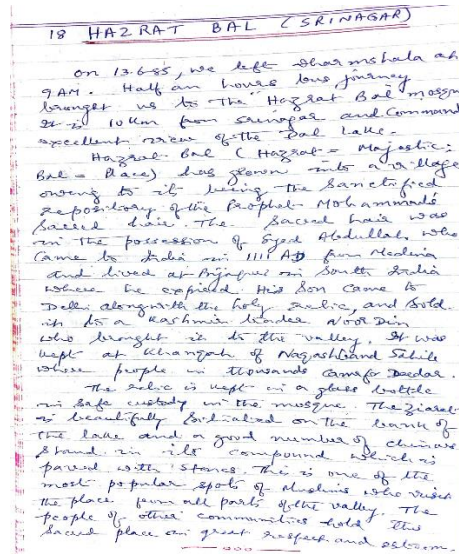 18 HAZRAT BAL (SRINAGAR)
on 13.6.85, we left dharmshala at
9AM. Half an hours bus journey
brought us to the Hazrat Bal mosque
It is 10 km from srinagar and Command
excellent view of the Dal Lake.
Hazrat Bal (Hazrat = Majestic;
Bal = Place) has grown into a village
owing to it being the Sanctified
repository of the Prophet Mohammad's
Sacred hair. The Sacred hair was
in the possession of Syed Abdullah, who
Came to India in 1111 AD from Medina
and lived at Bijapur in South India
where he expired. His Son came to
Delhi alongwith the holy relic, and sold
it to a Kashmiri trader Noor Din
who brought it to the valley. It was
kept at Khangah of Naqashband Sahib
where people in thousands came for Deedar.
The relic is kept in a glass bottle
in safe custody in the mosque. The ziarat
is beautifully Situated on the bank of
the lake and a good number of chinars
stand in its compound which is
paved with stones. This is one of the
most popular spots of Muslims who visit
the place from all parts of the valley. The
people of other communities hold this
Sacred place in great respect and esteem.